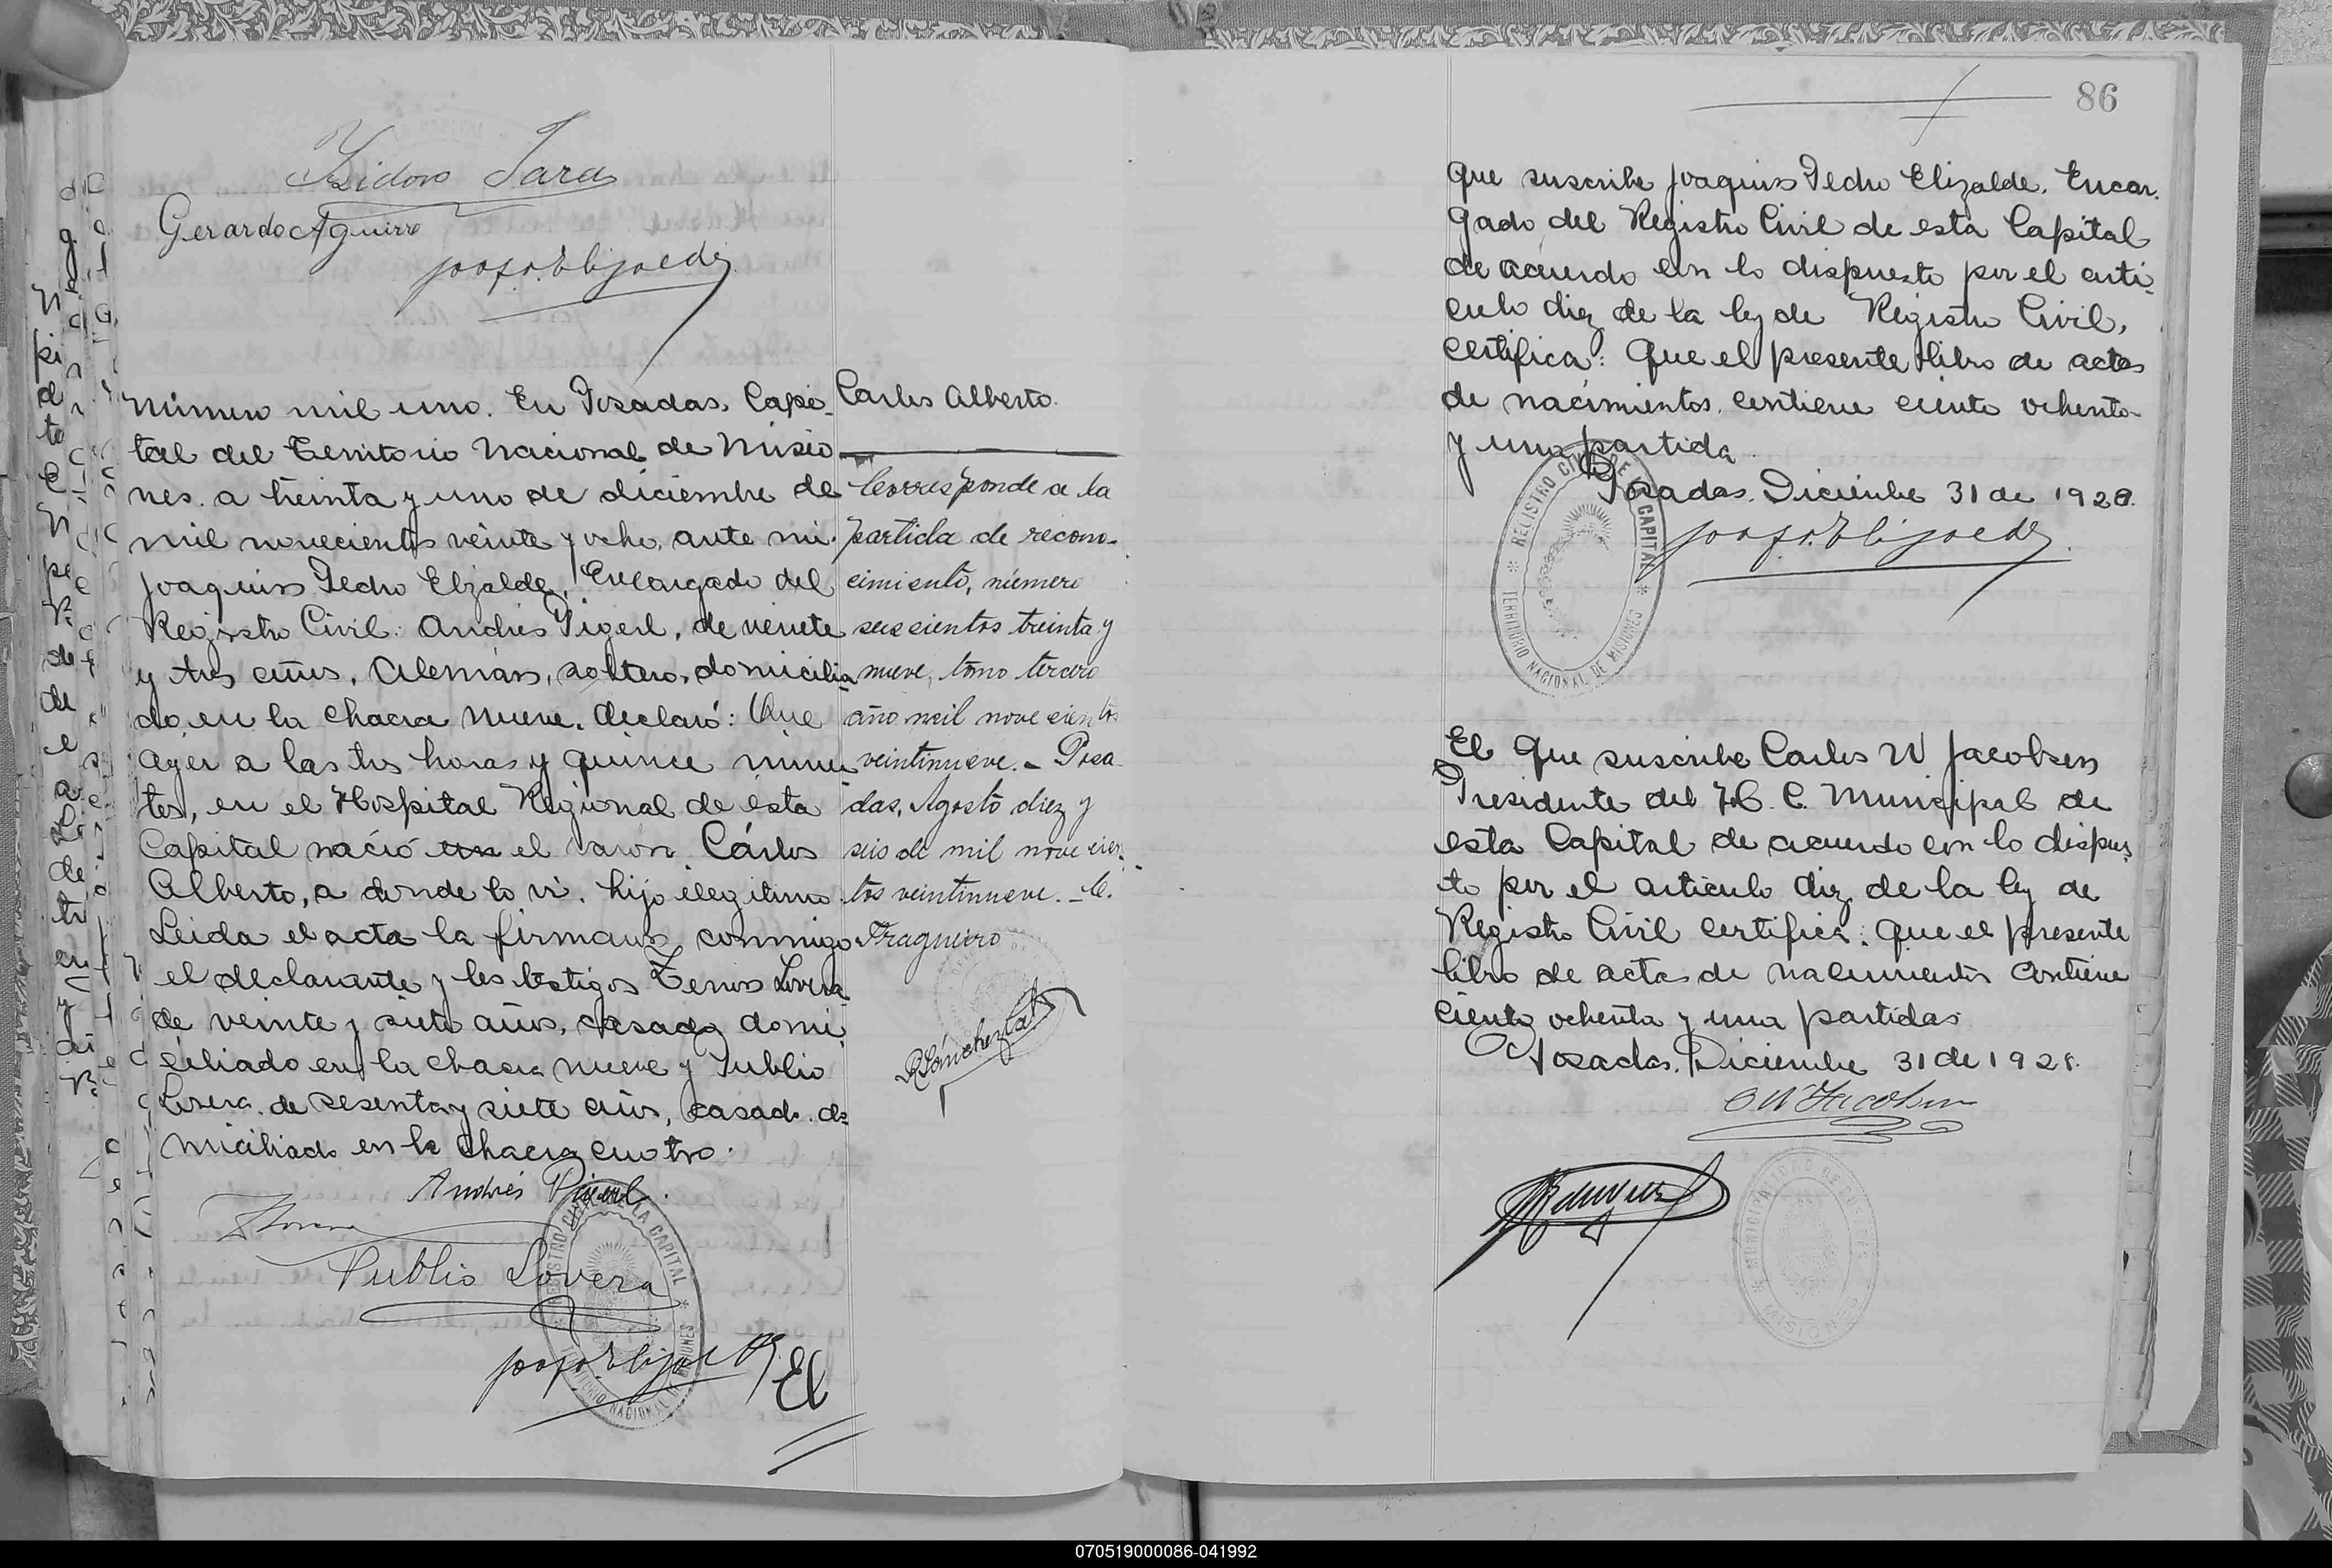 Isidoro Jara
Gerardo Aguirre
Número mil uno. En Posadas, Capi-
tal del Territorio Nacional de Misio-
nes. a treinta y uno de diciembre de
mil novecientos veinte y ocho, ante mi.
Joaquin Pedro Elizalde, Encargado del
Registro Civil: Andrés Pigerl, de veinte
y tres años, Alemán, soltero, domicilia-
do, en la chacra nueve, declaró: Que
ayer a las tres horas y quince minu
tos, en el Hospital Regional de esta
Capital nació el varón Cárlos
Alberto, a donde lo vi. hijo ilegitimo.
Leida el acta la firmaron conmigo
el declarante y los testigos Lovera
de veinte y siete años, casado, domi
ciliado en la chacra nueve y Publio
Lovera. de sesenta y siete años, casado. do=
miciliado en la chacra cuatro.
Andrés Pigerl.
Publio Lovera
El
Carlos Alberto.
Corresponde a la
partida de recono-
cimiento, número
seiscientos treinta y
nueve, tomo tercero
año mil novecientos
veintinueve. - Posa-
das, Agosto diez y
seis de mil novecien-
tos veintinueve. -
Fraguiero
RSánchez
REGISTRO CIVIL DE LA CAPITAL
TERRITORIO NACIONAL DE MISIONES
86
que suscribe Joaquin Pedro Elizalde. Encar-
gado del Registro Civil de esta Capital
de acuerdo con lo dispuesto por el arti-
culo diez de la ley de Registro Civil,
certifica: que el presente libro de actas
de nacimientos, contiene ciento ochenta
y una partida
Posadas. Diciembre 31 de 1928.
REGISTRO CIVIL DE LA CAPITAL
TERRITORIO NACIONAL DE MISIONES
El que suscribe Carlos W Jacobsen
Presidente del H. C. Municipal de
esta Capital de acuerdo con lo dispues
to por el articulo diez de la ley de
Registro Civil certifica: que el presente
libro de actas de nacimientos contiene
ciento ochenta y una partidas
Posadas. Diciembre 31 de 1928.
C W Jacobsen
MUNICIPALIDAD DE POSADAS
MISIONES
070519000086-041992